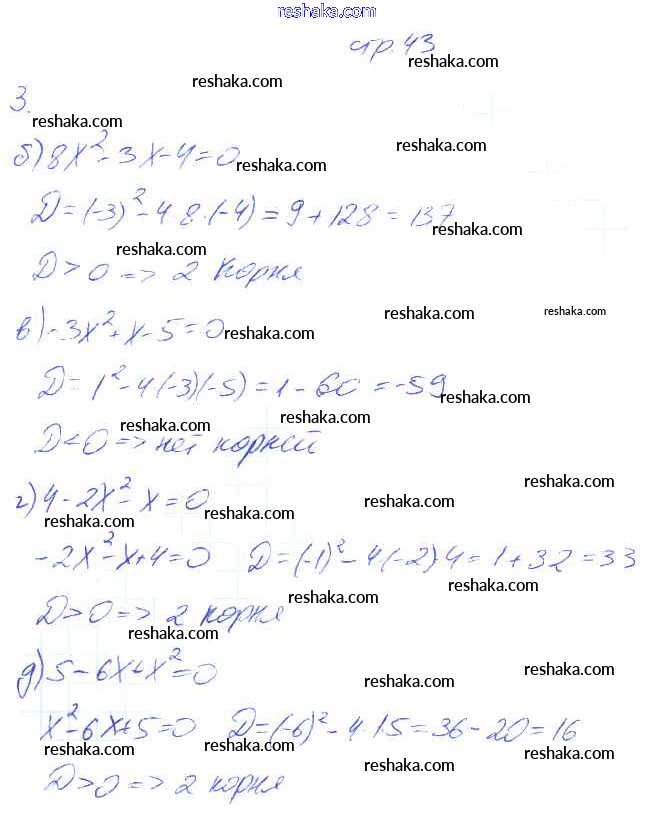 reshaka.com
стр. 43
reshaka.com reshaka.com
3.
reshaka.com reshaka.com
б) 8x² - 3x - 4 = 0 reshaka.com
D = (-3)² - 4·8·(-4) = 9 + 128 = 137
reshaka.com reshaka.com
D > 0 => 2 корня
reshaka.com reshaka.com
в) -3x² + x - 5 = 0 reshaka.com
D = 1² - 4(-3)(-5) = 1 - 60 = -59
reshaka.com reshaka.com
D < 0 => нет корней
reshaka.com reshaka.com
г) 4 - 2x² - x = 0
reshaka.com reshaka.com
-2x² - x + 4 = 0 D = (-1)² - 4·(-2)·4 = 1 + 32 = 33
reshaka.com reshaka.com
D > 0 => 2 корня
reshaka.com
д) 5 - 6x + x² = 0
reshaka.com reshaka.com
x² - 6x + 5 = 0 D = (-6)² - 4·1·5 = 36 - 20 = 16
reshaka.com reshaka.com reshaka.com
D > 0 => 2 корня reshaka.com